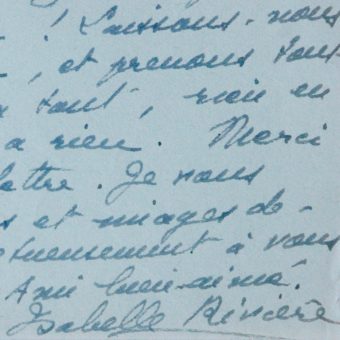 ! Laissons-nous
, et prenons tout
tout, rien en
a rien. Merci
lettre. Je vous
s et nuages de-
tueusement à vous
Ami bien-aimé.
Isabelle Rivière